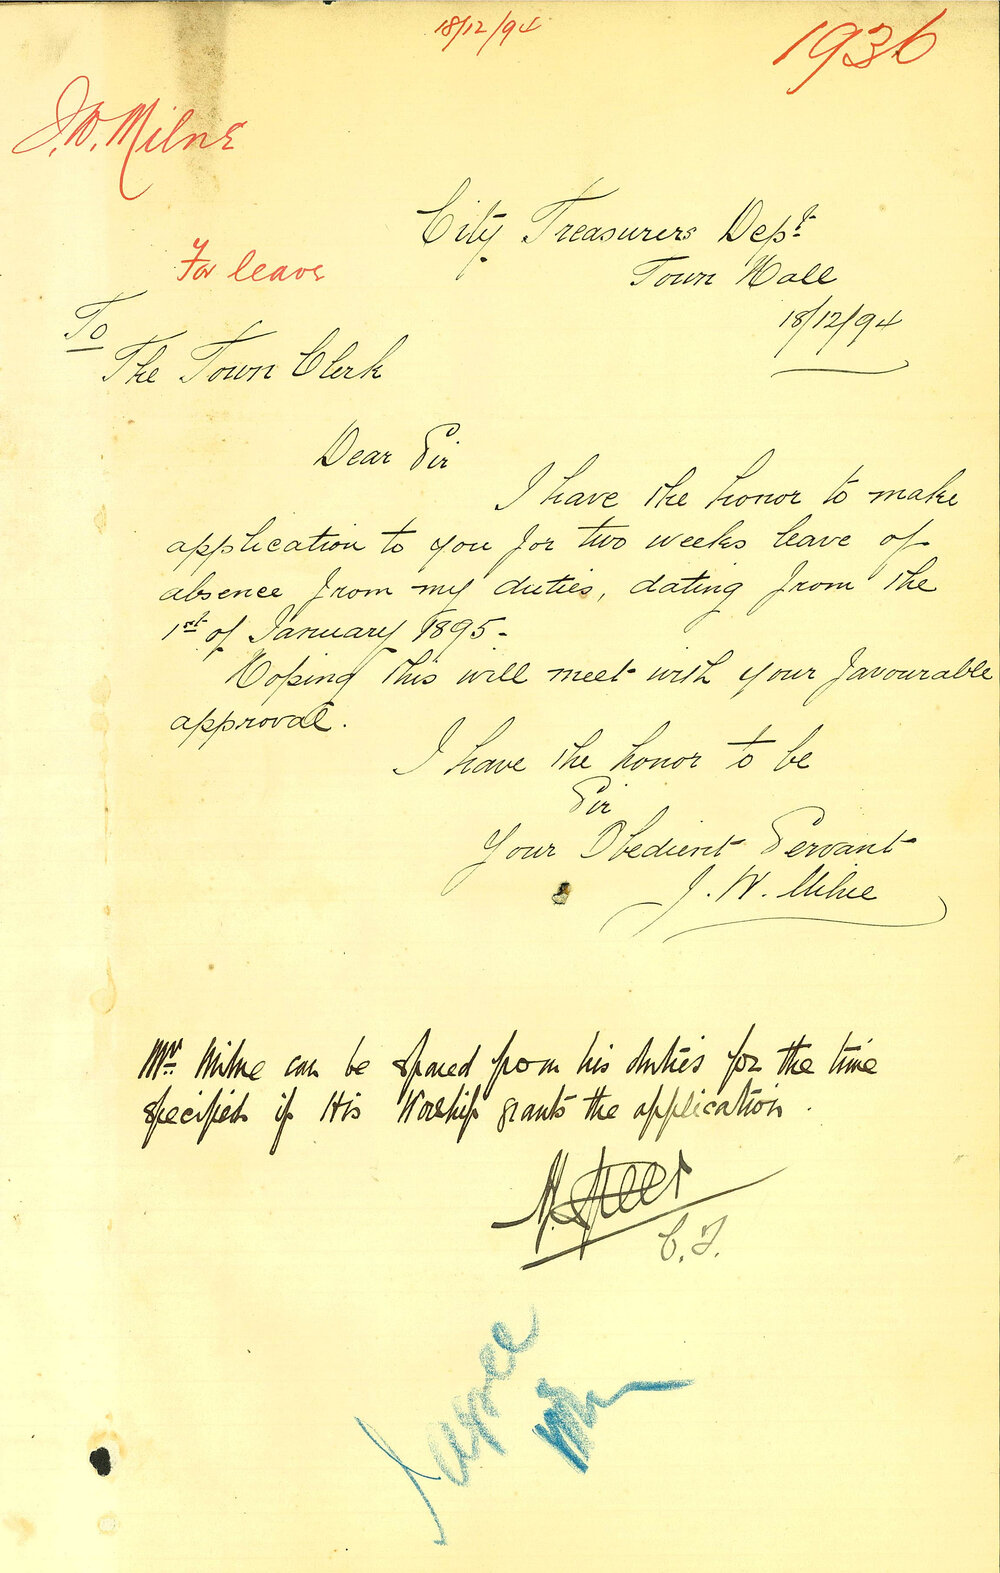 18/12/94
1936
J. W. Milne
For leave
City Treasurers Dept
Town Hall
18/12/94
To
The Town Clerk
Dear Sir
I have the honor to make
application to you for two weeks leave of
absence from my duties, dating from the
1st of January 1895-
Hoping this will meet with your favourable
approval.
I have the honor to be
Sir
Your Obedient Servant
J. W. Milne
Mr Milne can be spared from his duties for the time
specified if His Worship grants the application.
C.T.
I agree